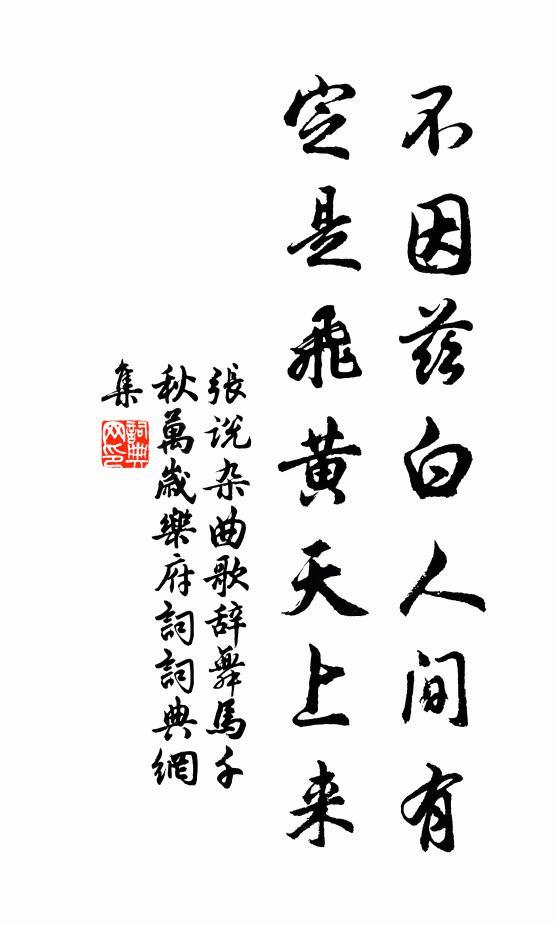 不因兹白人间有
定是飛黄天上来
張说杂曲歌辞舞馬千
秋萬歲樂府詞詞典網
集
詞典
网印